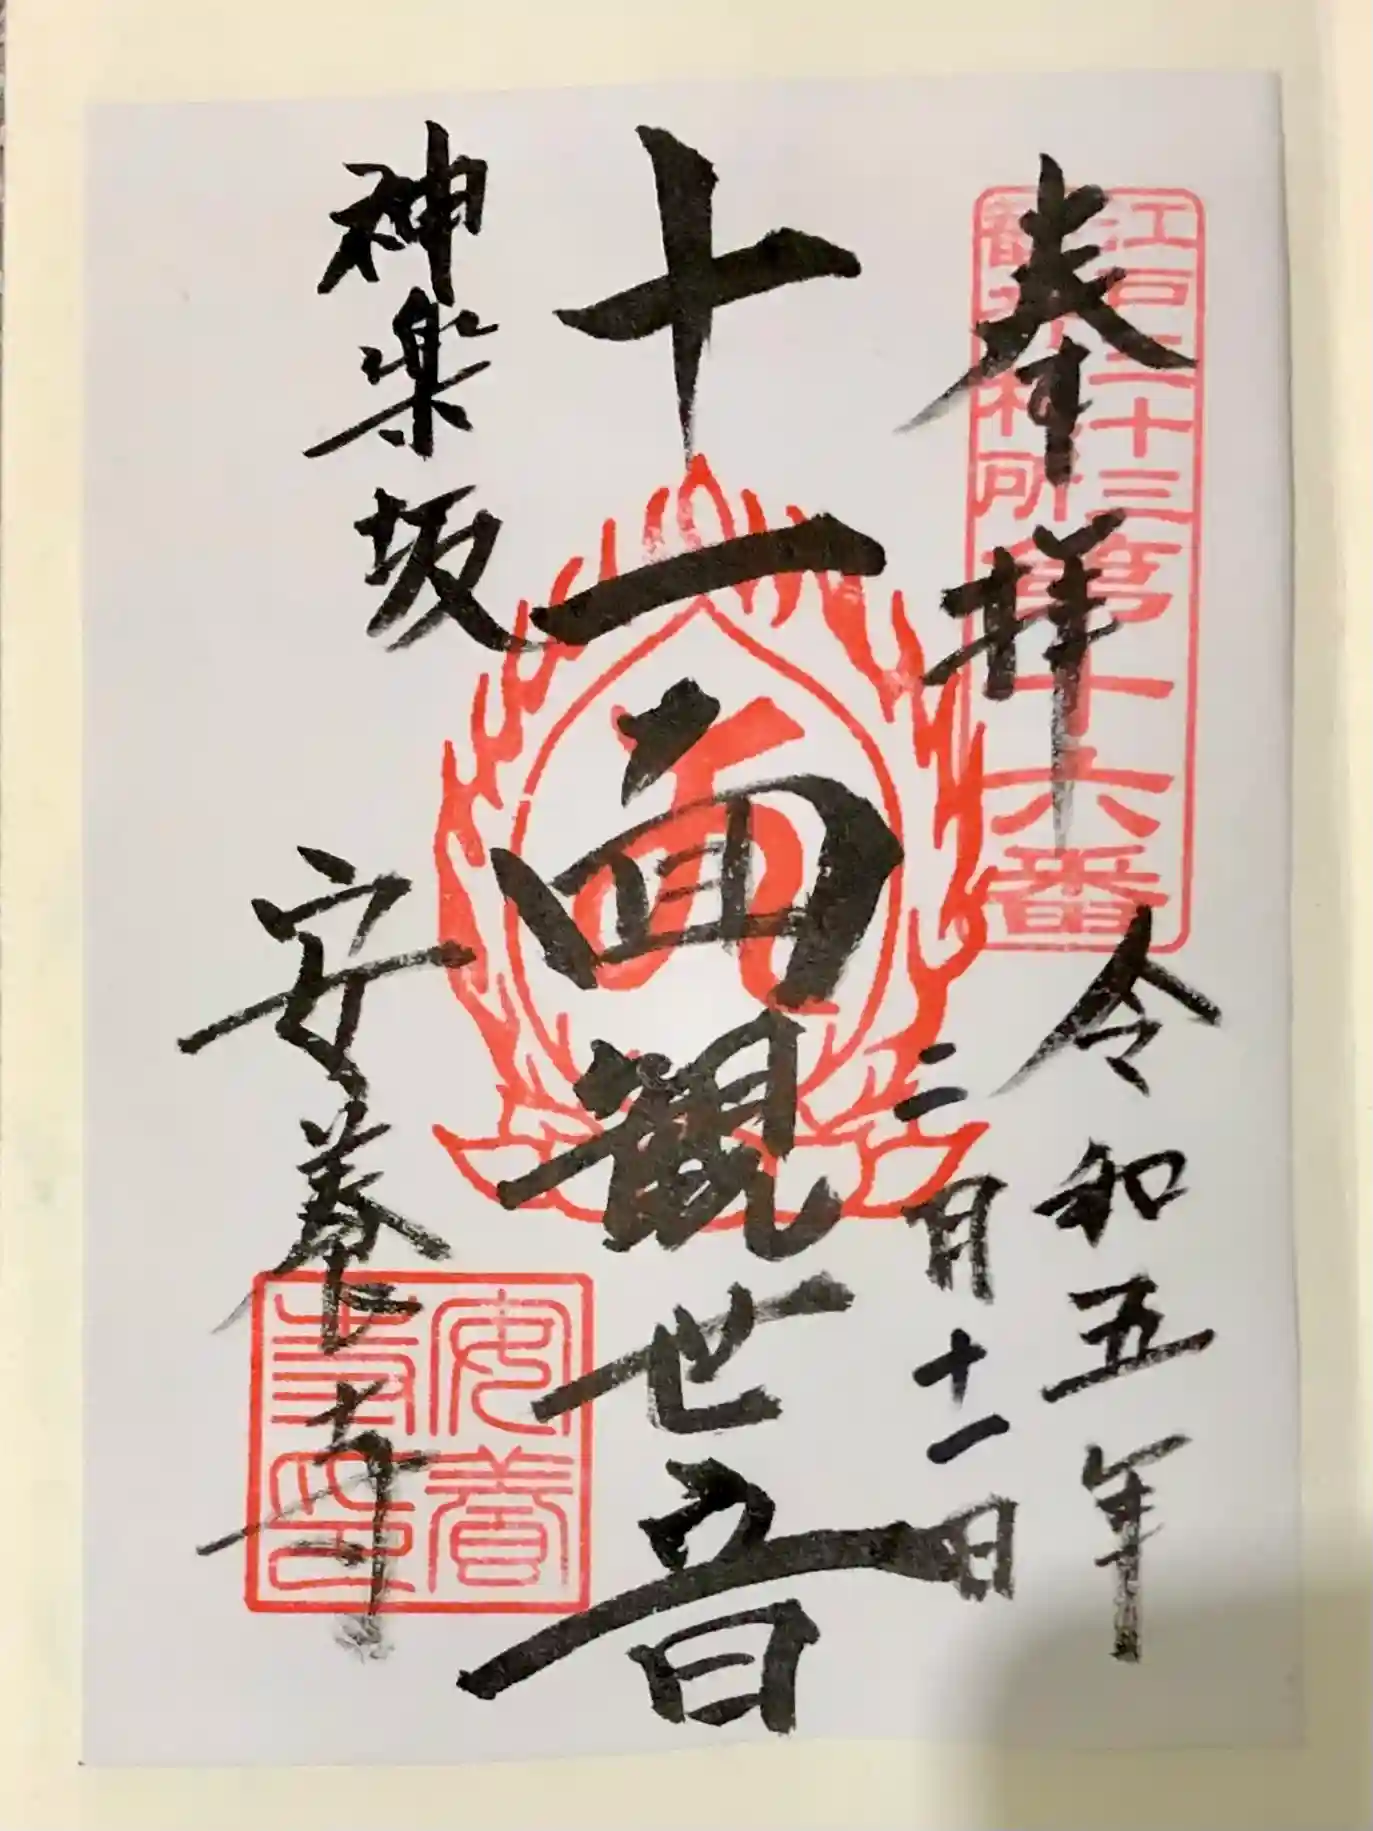 江戸三十三
観音札所
第十六番
奉拝
令和五年
二月十一日
十一面観世音
神楽坂
安養寺
安養
寺印